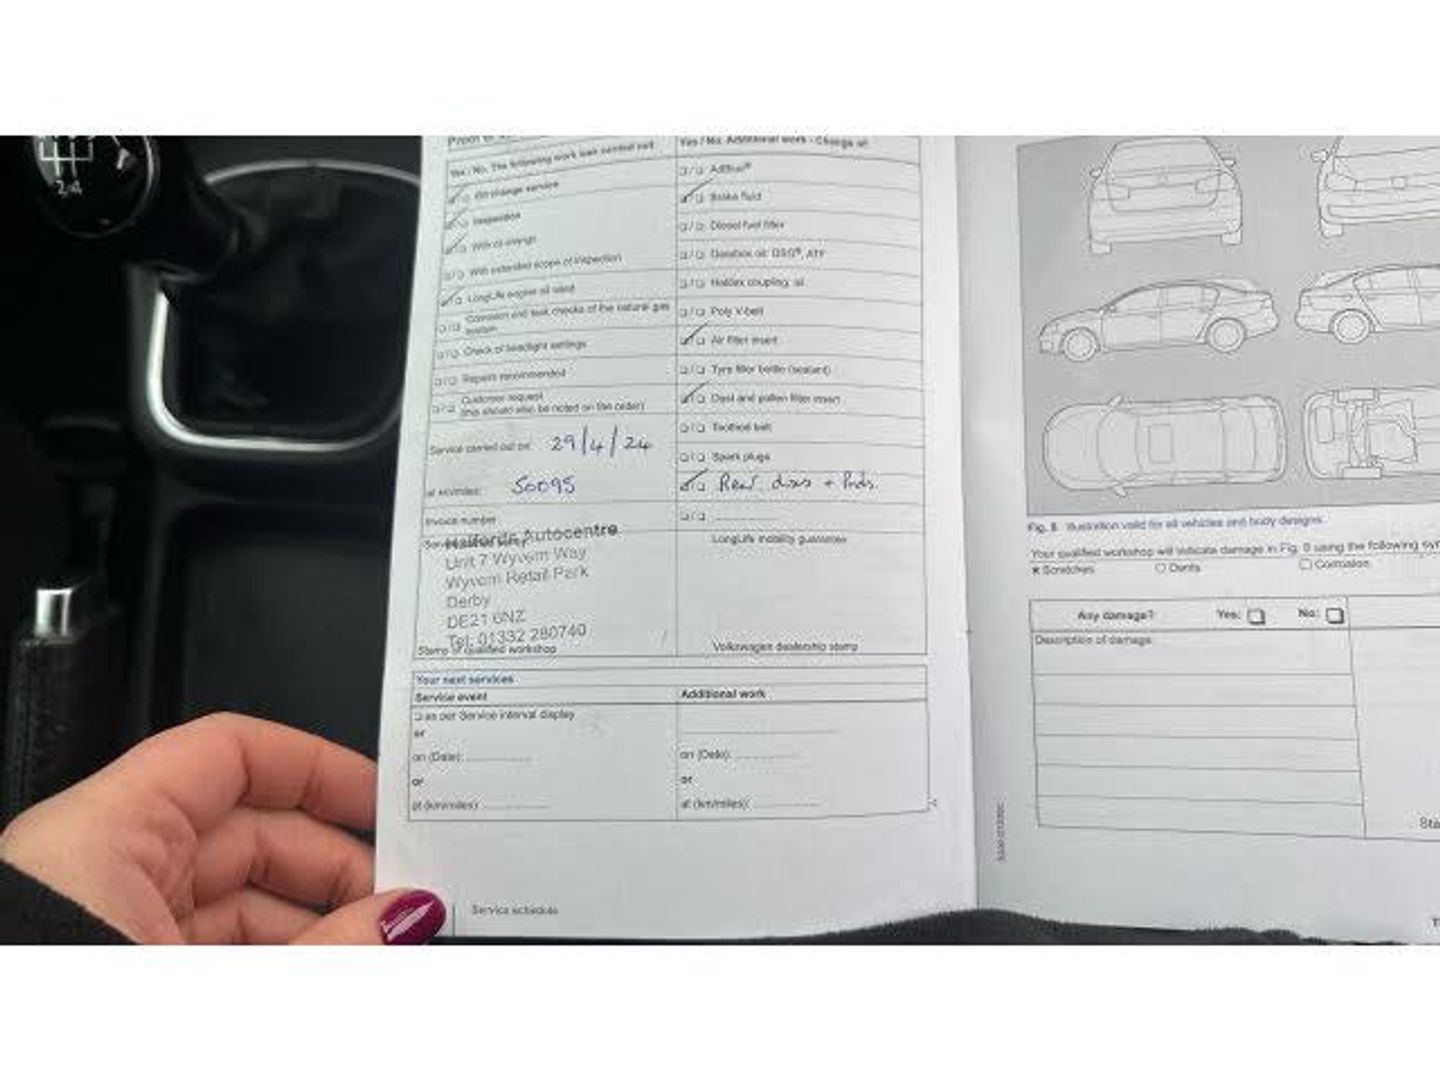 2 4
Yes / No: The following work was carried out
Oil change service
Inspection
With oil change
With extended scope of inspection
LongLife engine oil used
Corrosion and leak checks of the natural gas
system
Check of headlight settings
Repairs recommended
Customer request
(this should also be noted on the order)
Service carried out on: 29/4/24
at km/miles: 50095
Invoice number
Halfords Autocentre
Unit 7 Wyvern Way
Wyvern Retail Park
Derby
DE21 6NZ
Tel: 01332 280740
Stamp of qualified workshop
Yes / No: Additional work - Change of:
AdBlue®
Brake fluid
Diesel fuel filter
Gearbox oil: DSG®, ATF
Haldex coupling: oil
Poly V-belt
Air filter insert
Tyre filler bottle (sealant)
Dust and pollen filter insert
Toothed belt
Spark plugs
Rear discs + Pads.
LongLife mobility guarantee
Volkswagen dealership stamp
Your next services
Service event
Additional work
as per Service interval display
or
on (Date):
or
at (km/miles):
on (Date):
or
at (km/miles):
Service schedule
Fig. 8 Illustration valid for all vehicles and body designs
Your qualified workshop will indicate damage in Fig. 8 using the following sy
Scratches
Dents
Corrosion
Any damage? Yes: No:
Description of damage:
Sta